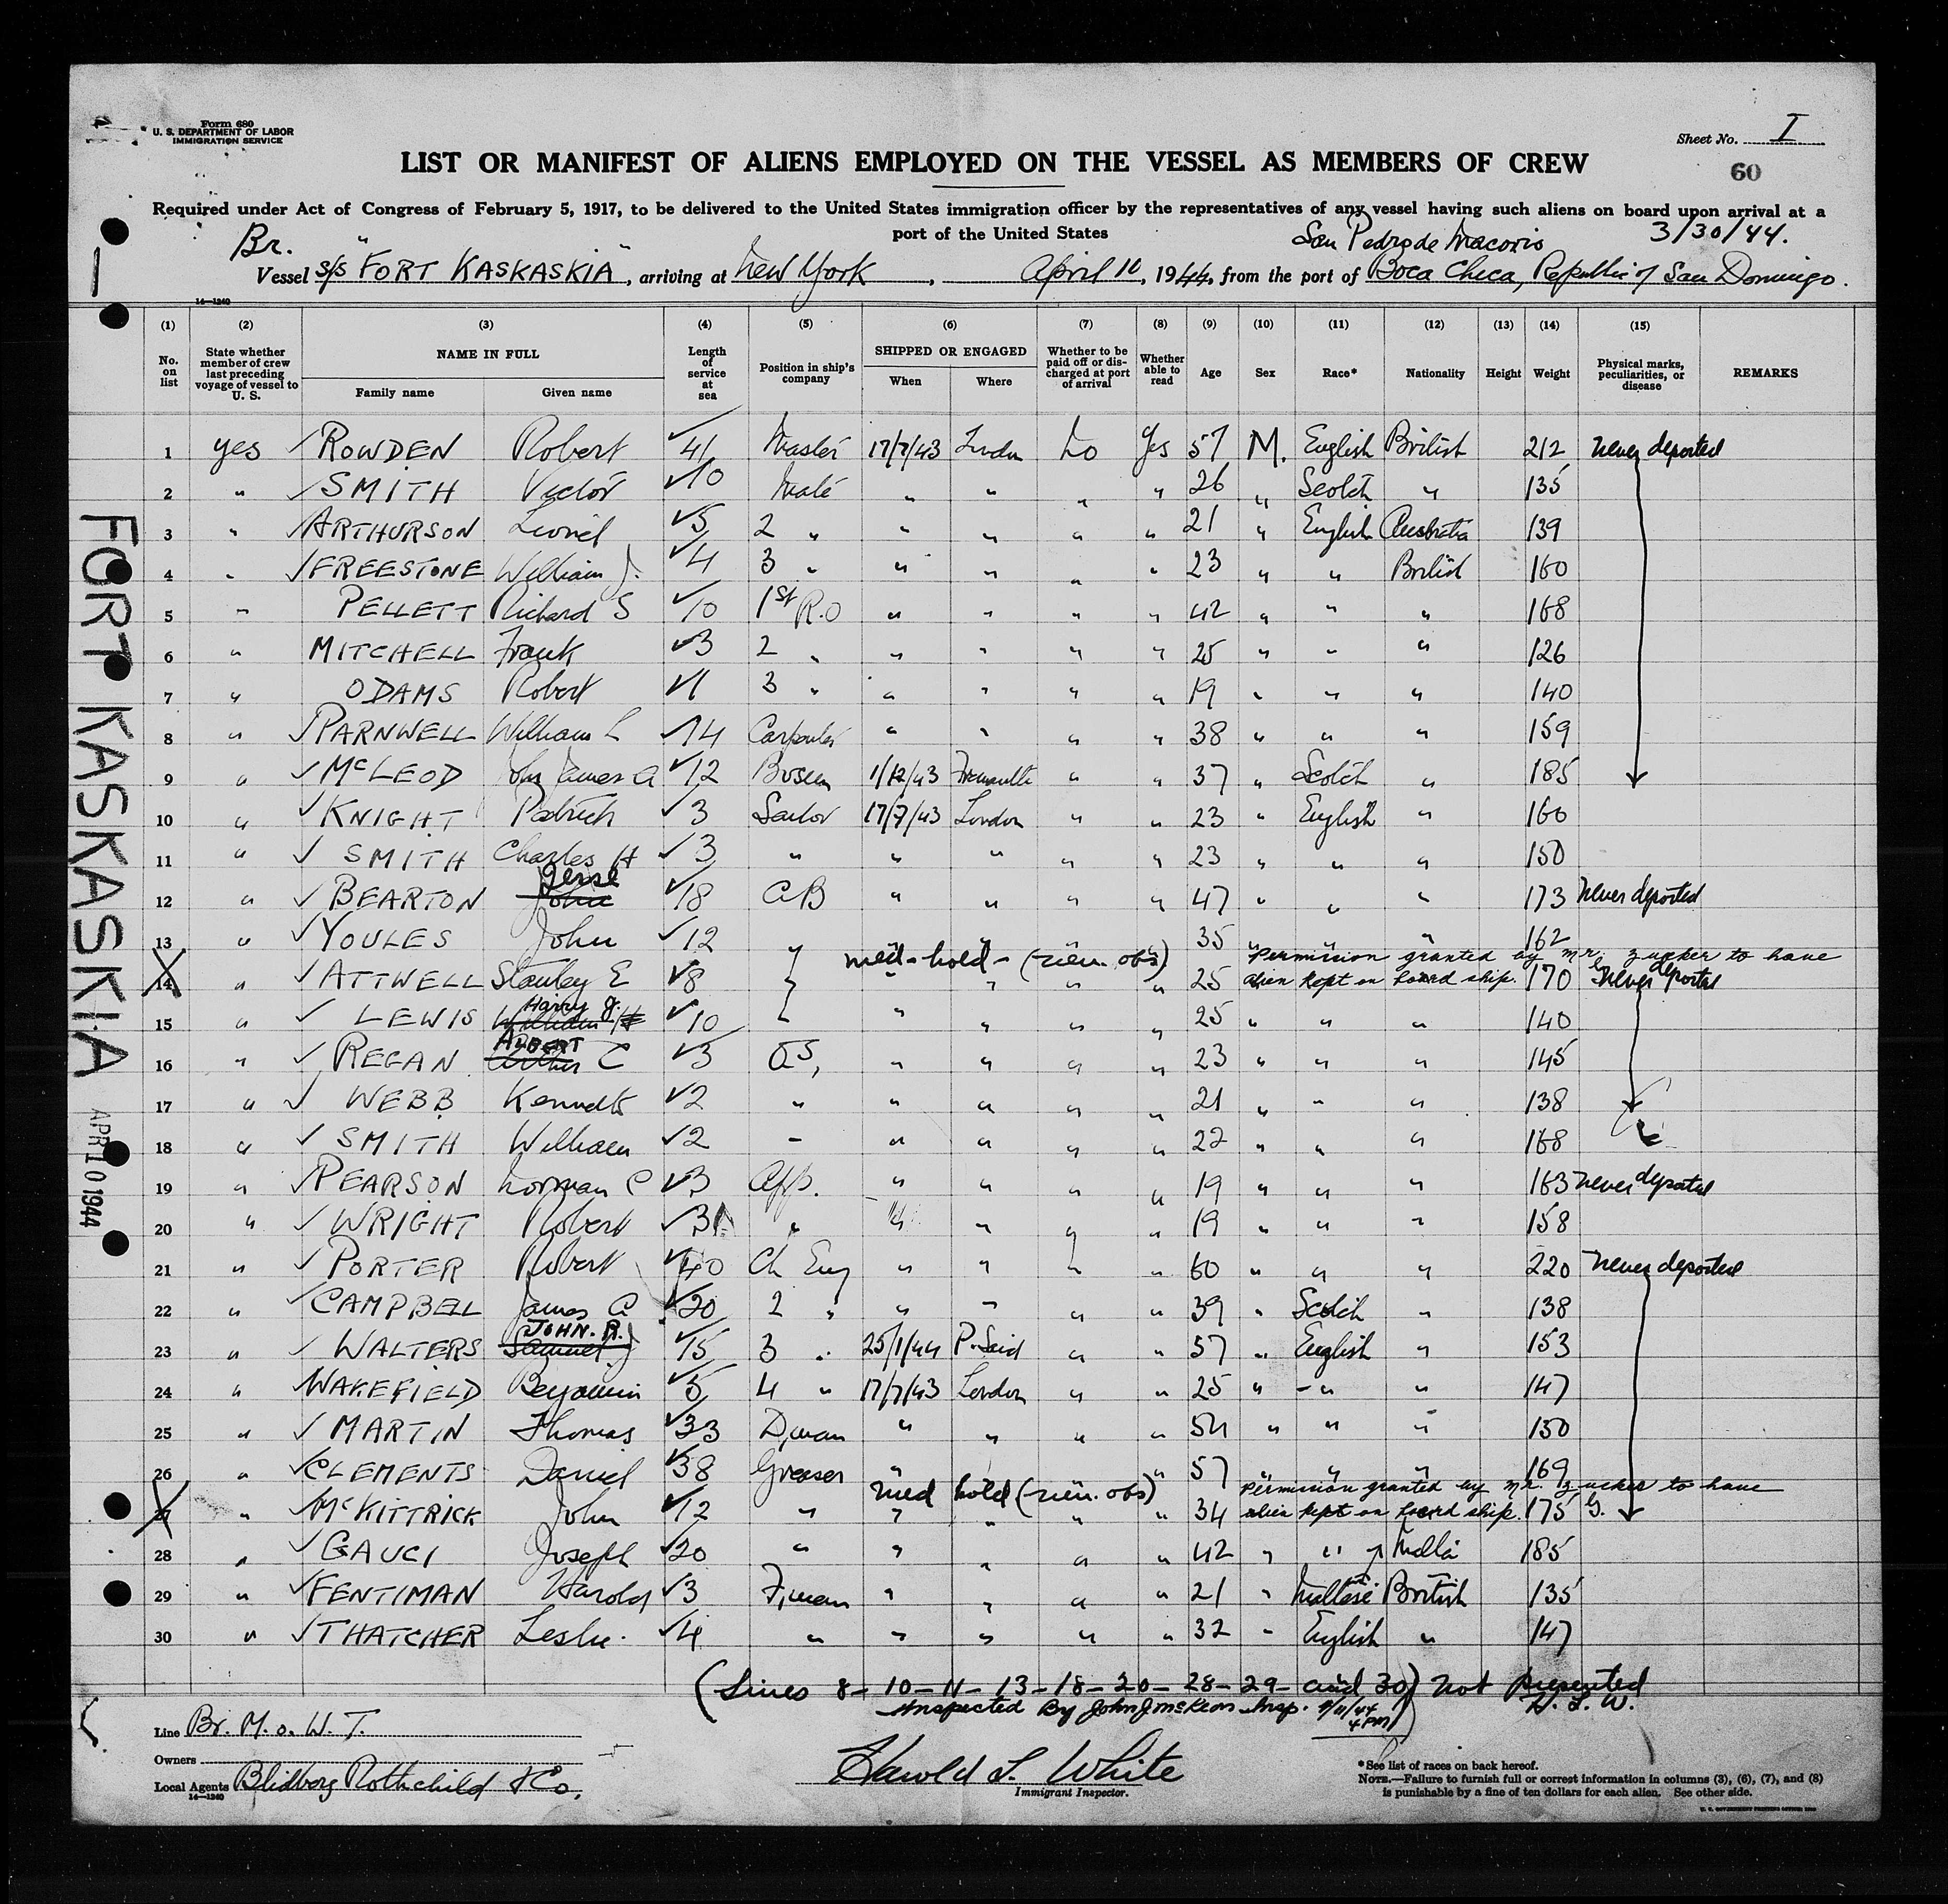 Form 680
U. S. DEPARTMENT OF LABOR
IMMIGRATION SERVICE
Sheet No. I
LIST OR MANIFEST OF ALIENS EMPLOYED ON THE VESSEL AS MEMBERS OF CREW
60
Required under Act of Congress of February 5, 1917, to be delivered to the United States immigration officer by the representatives of any vessel having such aliens on board upon arrival at a
port of the United States
Br. San Pedro de Macoris 3/30/44.
Vessel s/s "FORT KASKASKIA", arriving at New York, April 10, 1944, from the port of Boca Chica, Republic of San Domingo.
14—1240
(1) (2) (3) (4) (5) (6) (7) (8) (9) (10) (11) (12) (13) (14) (15)
No. on list State whether member of crew last preceding voyage of vessel to U. S. NAME IN FULL Family name Given name Length of service at sea Position in ship's company SHIPPED OR ENGAGED When Where Whether to be paid off or discharged at port of arrival Whether able to read Age Sex Race* Nationality Height Weight Physical marks, peculiarities, or disease REMARKS
1 yes ✓ ROWDEN Robert ✓ 41 Master 17/7/43 London No Yes 57 M. English British 212 never deported
2 " ✓ SMITH Victor ✓ 10 Mate " " " " 26 " Scotch " 135
3 " ✓ ARTHURSON Lionel ✓ 5 2 " " " " " 21 " English Australia 139
4 " ✓ FREESTONE William J. ✓ 4 3 " " " " " 23 " " British 160
5 " PELLETT Richard S ✓ 10 1st R.O " " " " 42 " " " 168
6 " MITCHELL Frank ✓ 3 2 " " " " " 25 " " " 126
7 " ODAMS Robert ✓ 1 3 " " " " " 19 " " " 140
8 " ✓ PARNWELL William L ✓ 14 Carpenter " " " " 38 " " " 159
9 " ✓ McLEOD John James A ✓ 12 Bosun 1/12/43 Fremantle " " 37 " Scotch " 185
10 " ✓ KNIGHT Patrick ✓ 3 Sailor 17/7/43 London " " 23 " English " 160
11 " ✓ SMITH Charles H ✓ 3 " " " " " 23 " " " 150
12 " ✓ BEARTON John Jesse ✓ 18 AB " " " " 47 " " " 173 never deported
13 " ✓ YOULES John ✓ 12 " " " " " 35 " " " 162
med-hold-(ven. obs) Permission granted by Mr. Zucker to have
14 " ✓ ATTWELL Stanley E ✓ 8 " " " " " 25 alien kept on board ship. 170 never deported
15 " ✓ LEWIS William H Harry J. ✓ 10 " " " " " 25 " " " 140
16 " ✓ REGAN Arthur ALBERT C ✓ 3 OS, " " " " 23 " " " 145
17 " ✓ WEBB Kenneth ✓ 2 " " " " " 21 " " " 138
18 " ✓ SMITH William ✓ 2 " " " " " 22 " " " 168
19 " ✓ PEARSON Norman C ✓ 3 App. " " " " 19 " " " 163 never deported
20 " ✓ WRIGHT Robert ✓ 3 " " " " " 19 " " " 158
21 " ✓ PORTER Robert ✓ 40 Ch Eng " " " " 60 " " " 220 never deported
22 " ✓ CAMPBELL James A ✓ 20 2 " " " " " 39 " Scotch " 138
23 " ✓ WALTERS Samuel J JOHN. R. ✓ 15 3 " 25/1/44 P. Said " " 57 " English " 153
24 " WAKEFIELD Benjamin ✓ 5 4 " 17/7/43 London " " 25 " " " 147
25 " ✓ MARTIN Thomas ✓ 33 D,man " " " " 54 " " " 150
26 " ✓ CLEMENTS Daniel ✓ 38 Greaser " " 57 " " " 169
med hold (ven. obs) Permission granted by Mr. Zucker to have
27 " ✓ McKITTRICK John ✓ 12 " " " " " 34 alien kept on board ship. 175 G.
28 " ✓ GAUCI Joseph ✓ 20 " " " " " 42 " " Malta 185
29 " ✓ FENTIMAN Harold ✓ 3 F,man " " " " 21 " Maltese British 135
30 " ✓ THATCHER Leslie. ✓ 4 " " " " " 32 " English " 147
(Lines 8 - 10 - 11 - 13 - 18 - 20 - 28 - 29 - and 30) not presented
Inspected By John J McKeon Insp. 4/11/44 4 PM H. L. W.
Line Br. M. o. W. T.
Owners
Local Agents Blidberg Rothchild & Co.
14—1240
Harold L. White
Immigrant Inspector.
*See list of races on back hereof.
NOTE.—Failure to furnish full or correct information in columns (3), (6), (7), and (8)
is punishable by a fine of ten dollars for each alien. See other side.
FORT KASKASKIA
APR 10 1944